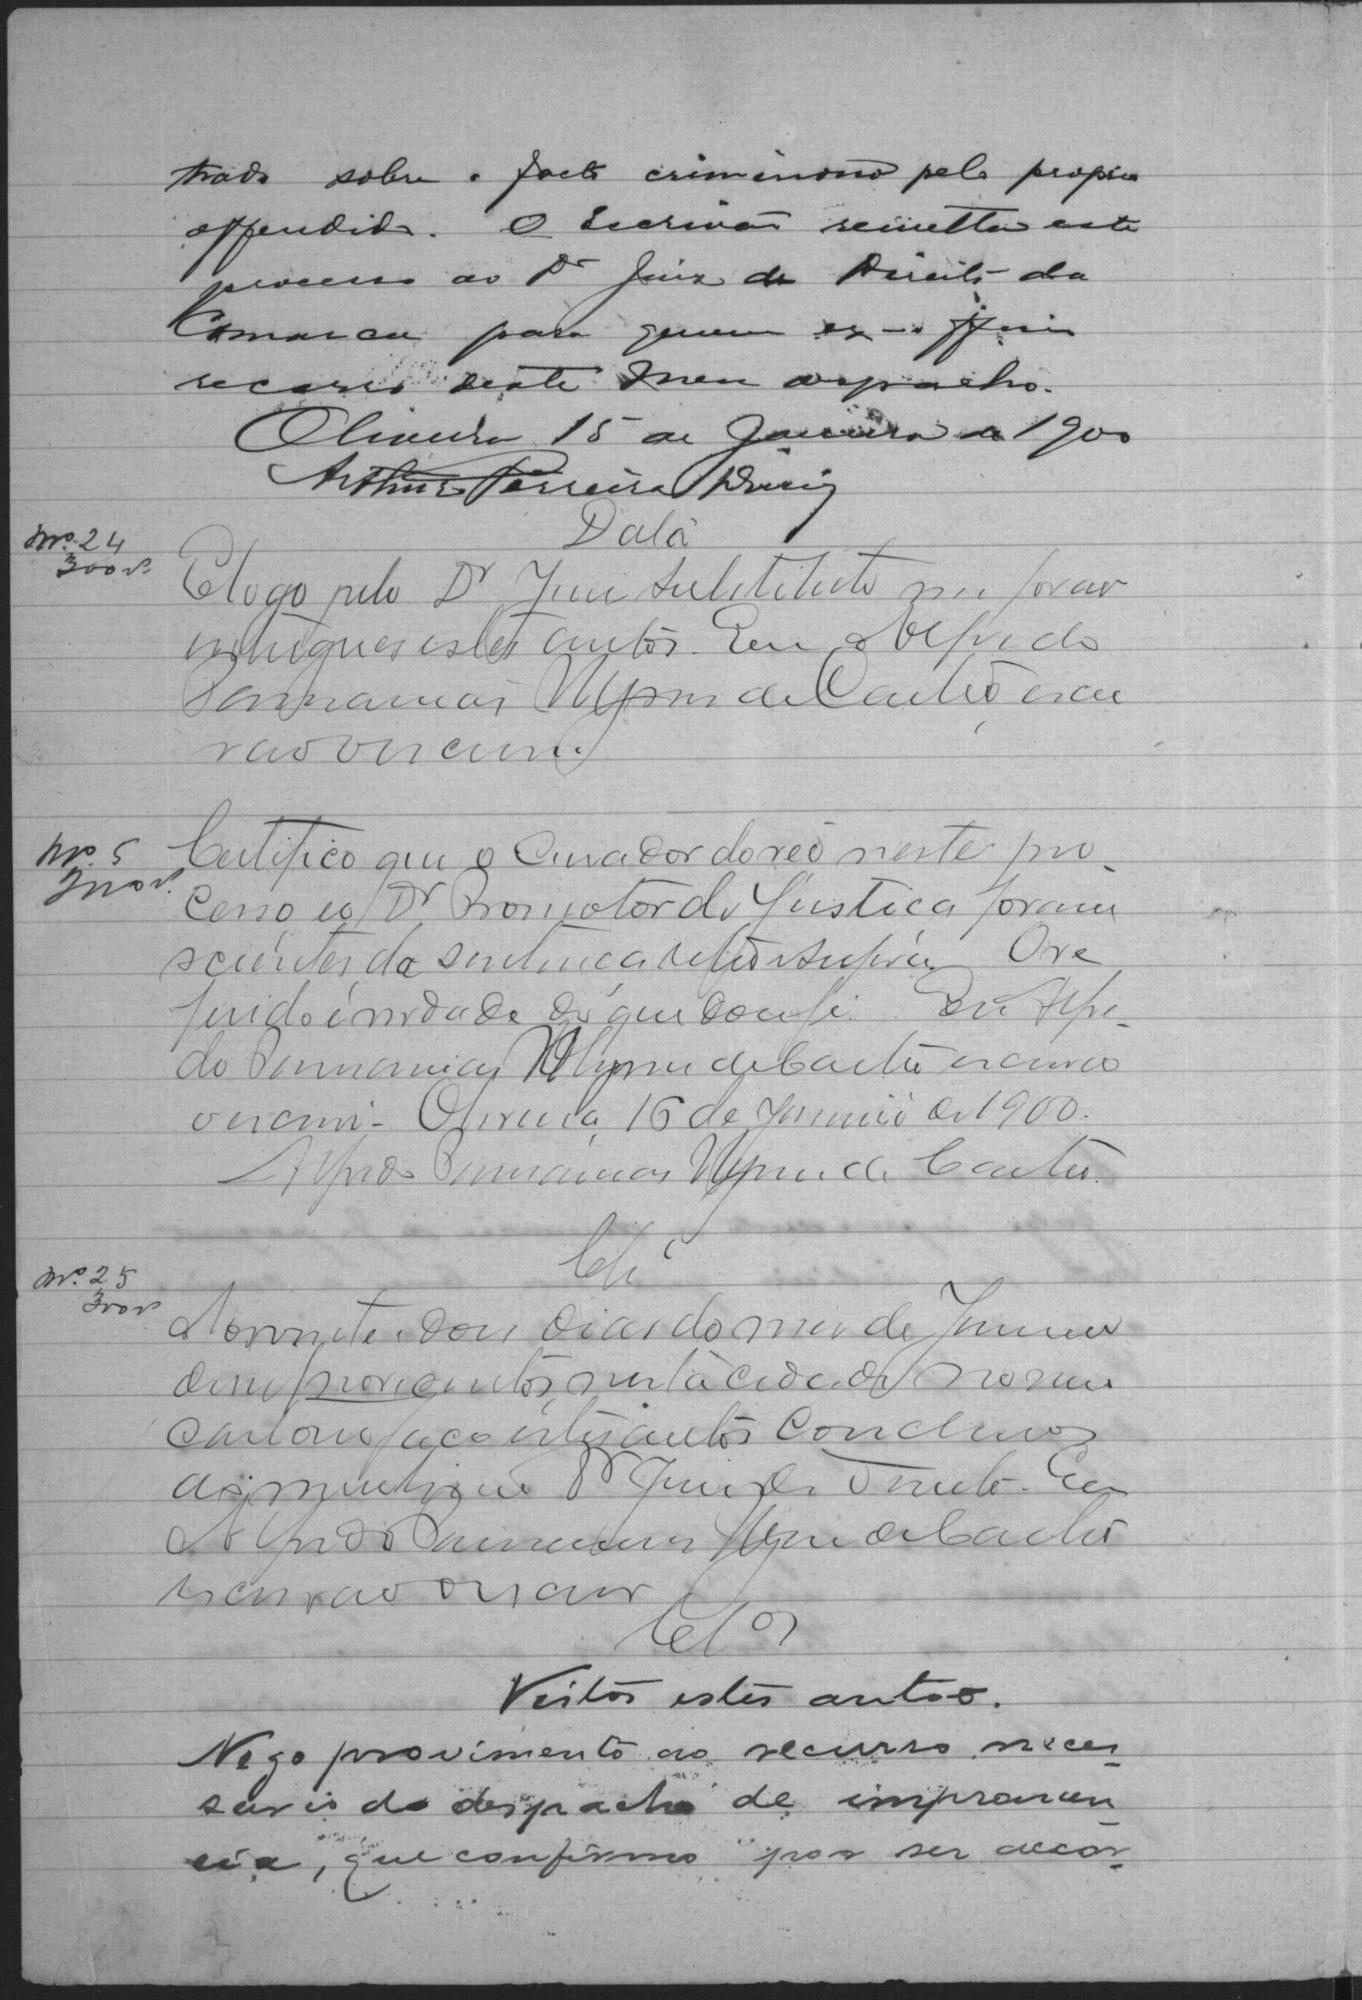 trado sobre o facto criminoso pelo proprio
offendido. O Escrivão remetta este
processo ao Dr Juiz de Direito da
Comarca para quem ex-officio
recorro deste meu despacho.
Oliveira 15 de Janeiro de 1900
Arthur Ferreira Diniz
Data
No. 24
300 rs
E logo pelo Dr Juiz Substituto me foram
entregues estes autos. Eu Alfredo
Parnamas de Castro escri
vão o escrevi
No. 5
Certifico que o Curador do réo neste pro-
cesso e o Dr Promotor de Justiça foram
scientes da sentença retro e supra. O re
ferido é verdade do que dou fé. Eu Alfre-
do de Castro escrivão
o escrevi. Oliveira, 16 de Janeiro de 1900.
Alfredo de Castro.
Cls
No. 25
300 rs
Aos vinte e dois dias do mez de Janeiro
de mil novecentos, nesta cidade, no meu
cartorio faço estes autos conclusos
ao Dr Juiz de Direito. Eu
Alfredo de Castro
escrivão o escrevi
Clos
Vistos estes autos.
Nego provimento ao recurso neces-
sario do despacho de impronun
cia, que confirmo por ser decor-